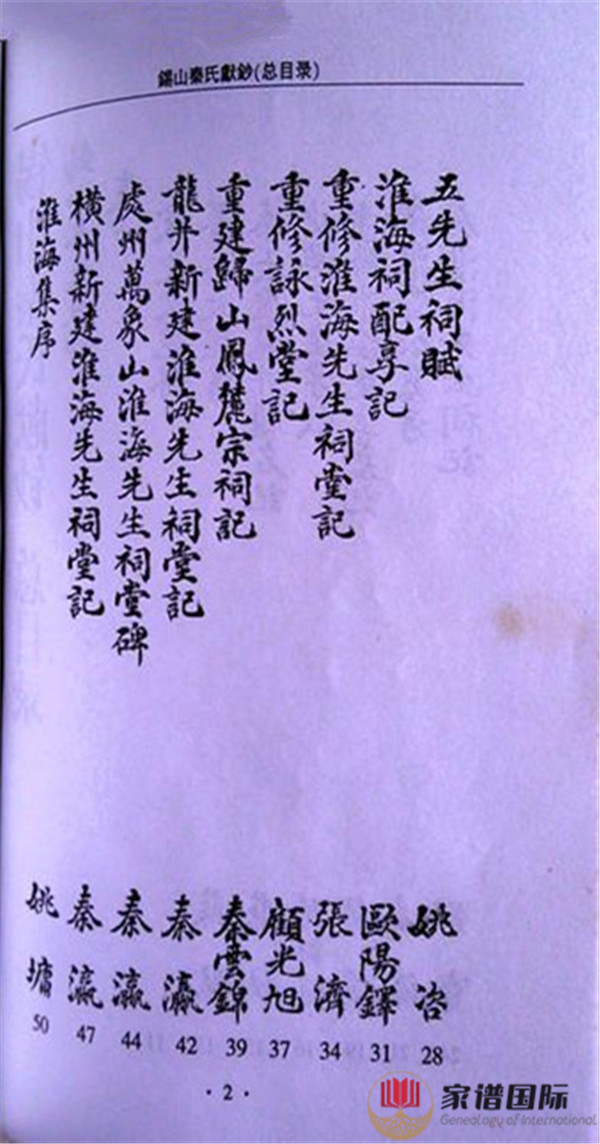 錫山秦氏獻鈔(总目录)
五先生祠賦 姚咨 28
淮海祠配享記 歐陽鐸 31
重修淮海先生祠堂記 張濟 34
重修詠烈堂記 顧光旭 37
重建歸山鳳麓宗祠記 秦雲錦 39
龍井新建淮海先生祠堂記 秦瀛 42
處州萬象山淮海先生祠堂碑 秦瀛 44
橫州新建淮海先生祠堂記 秦瀛 47
淮海集序 姚墉 50
·2·
家谱国际
Genealogy of International